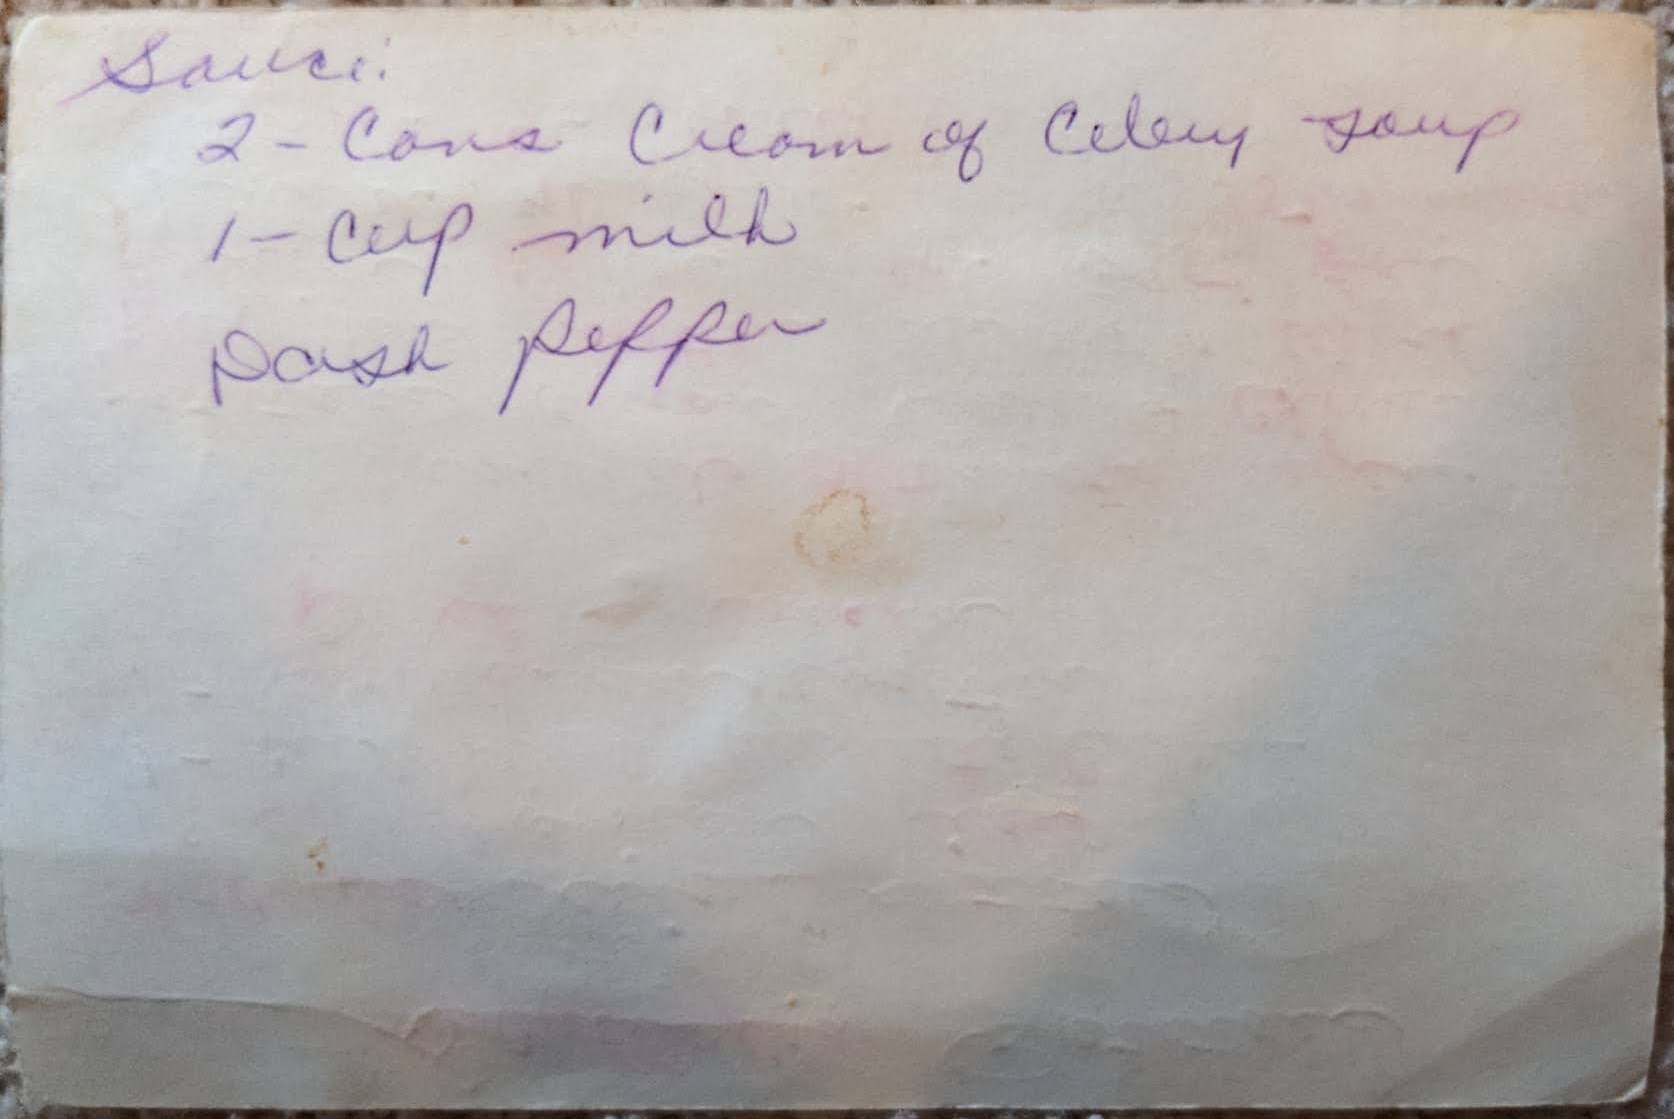 Sauce:
2 - Cans Cream of Celery soup
1 - Cup milk
Dash pepper